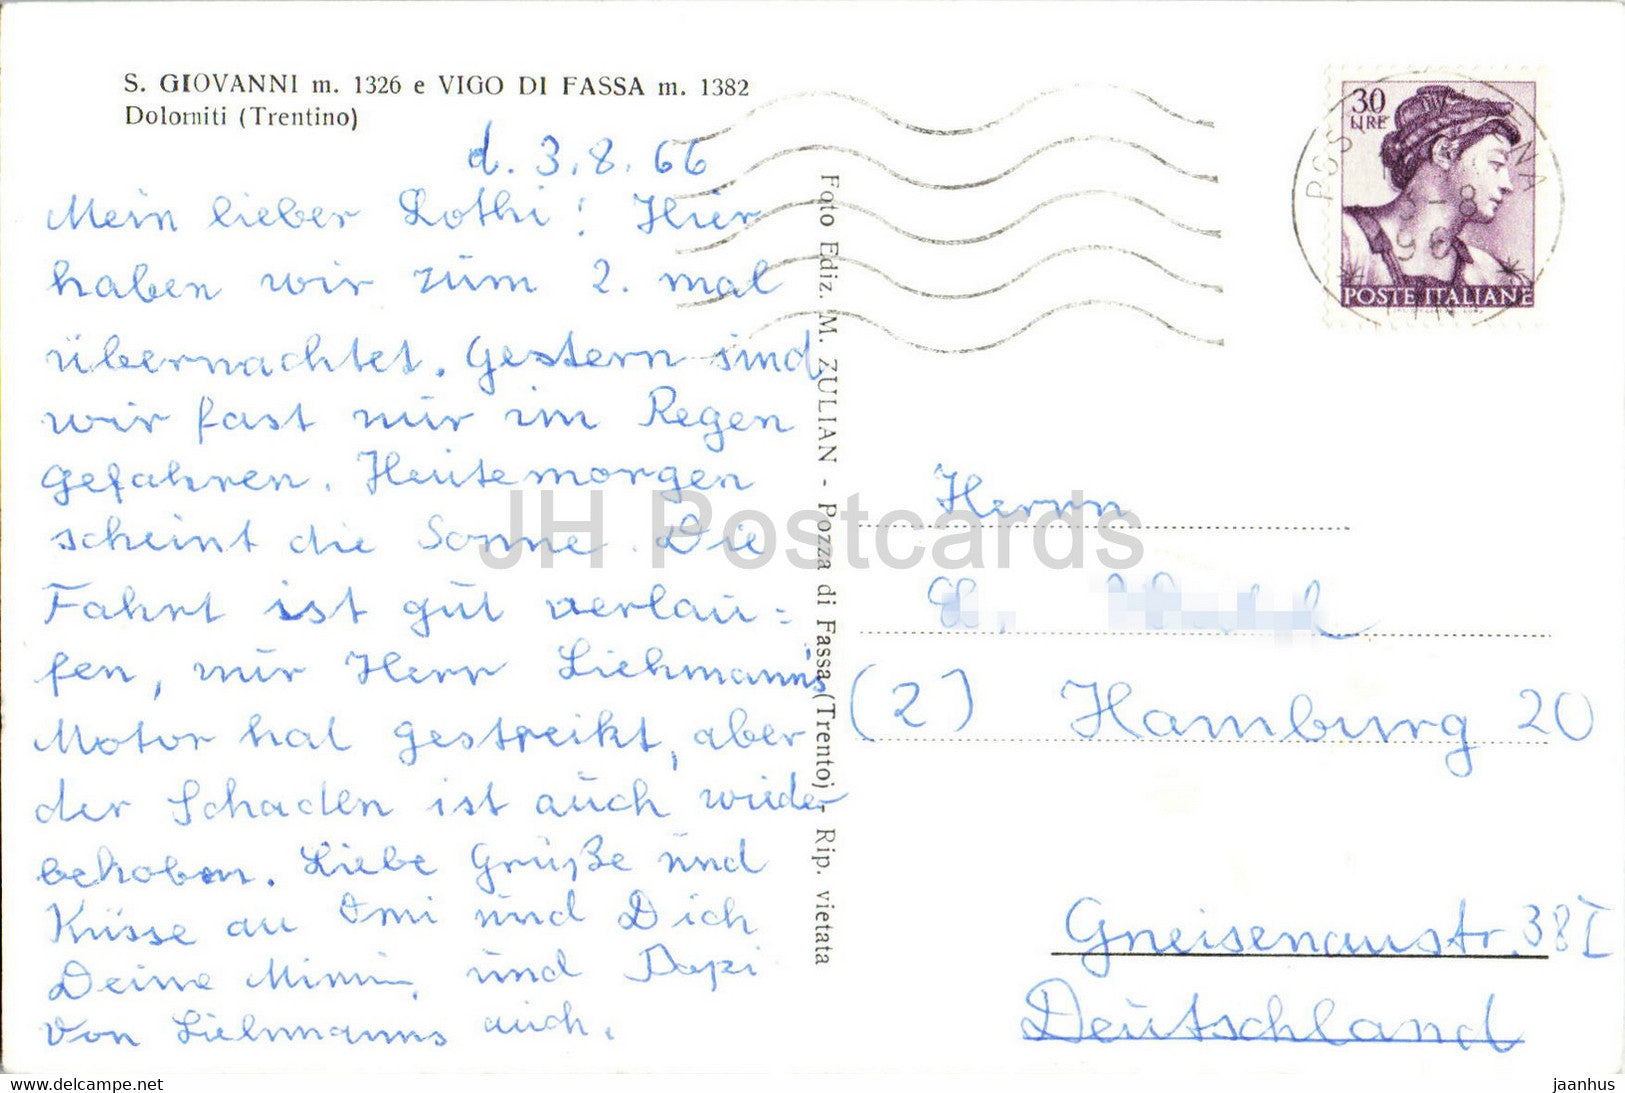 S. GIOVANNI m. 1326 e VIGO DI FASSA m. 1382
Dolomiti (Trentino)
d. 3.8.66
Mein lieber Lothi! Hier
haben wir zum 2. mal
übernachtet. Gestern sind
wir fast nur im Regen
gefahren. Heutemorgen
scheint die Sonne. Die
Fahrt ist gut verlau=
fen, nur Herr Liehmanns
Motor hat gestreikt, aber
der Schaden ist auch wieder
behoben. Liebe Grüße und
Küsse an Omi und Dich
Deine Mimi, und Papi
Von Liehmanns auch.
Foto Ediz. M. ZULIAN - Pozza di Fassa (Trento) - Rip. vietata
30
LIRE
POSTE ITALIANE
Herrn
(2) Hamburg 20
Gneisenaustr. 38 I
Deutschland
JH Postcards
www.delcampe.net
jaanhus